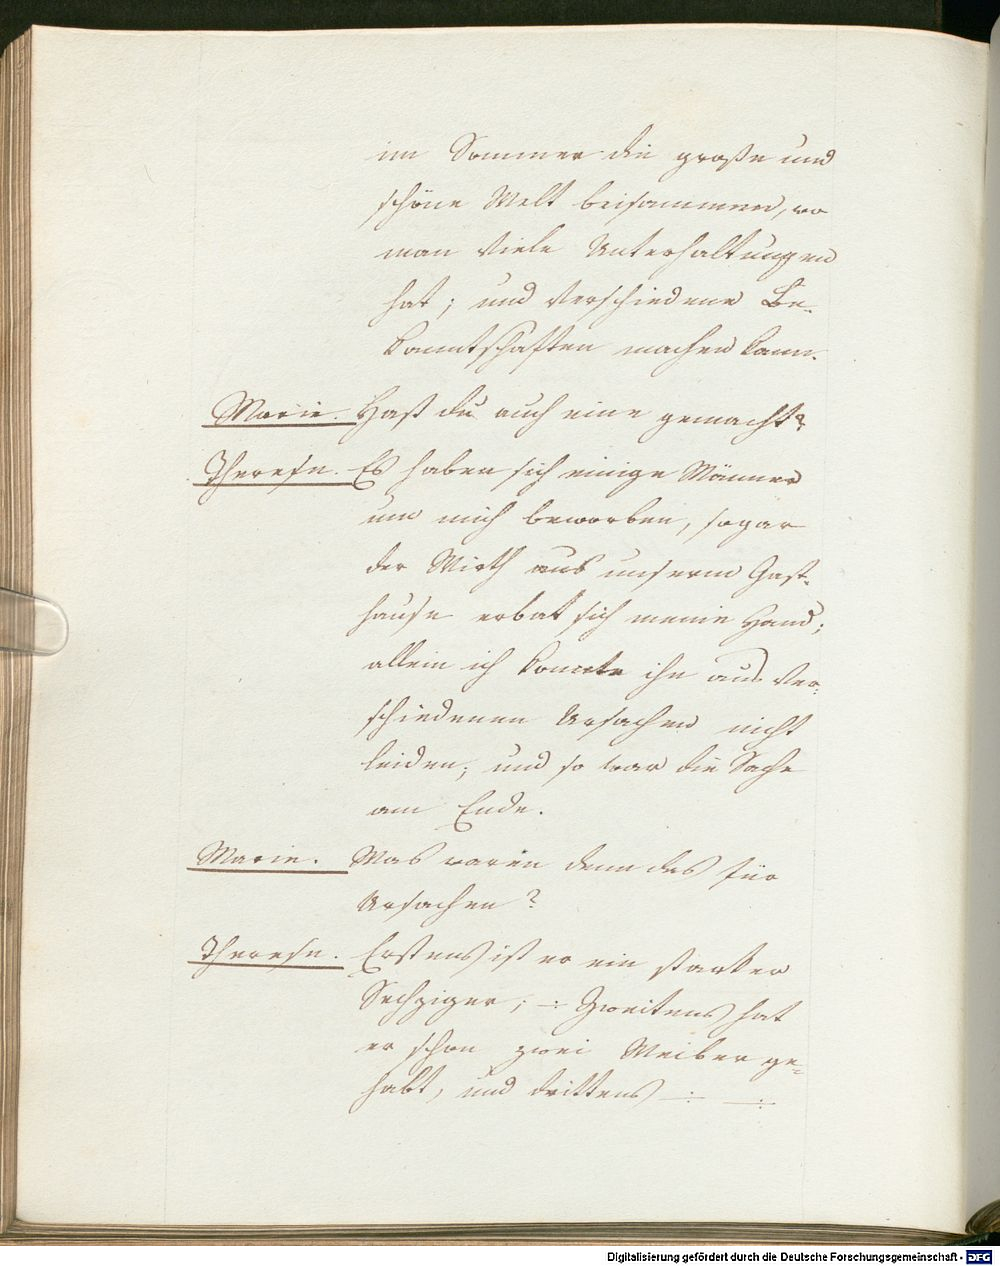 im Sommer die große und
schöne Welt beisammen, wo
man viele Unterhaltungen
hat; und verschiedene Be-
kanntschaften machen kann.
Marie. Hast du auch eine gemacht?
Therese. Es haben sich einige Männer
um mich beworben, sogar
der Wirth aus unserm Gast-
hause erbat sich meine Hand;
allein ich konnte ihn aus ver-
schiedenen Ursachen nicht
leiden, und so war die Sache
am Ende.
Marie. Was waren denn das für
Ursachen?
Therese. Erstens ist er ein starker
Sechziger; -:- Zweitens hat
er schon zwei Weiber ge-
habt, und drittens -:- -:-
Digitalisierung gefördert durch die Deutsche Forschungsgemeinschaft - DFG